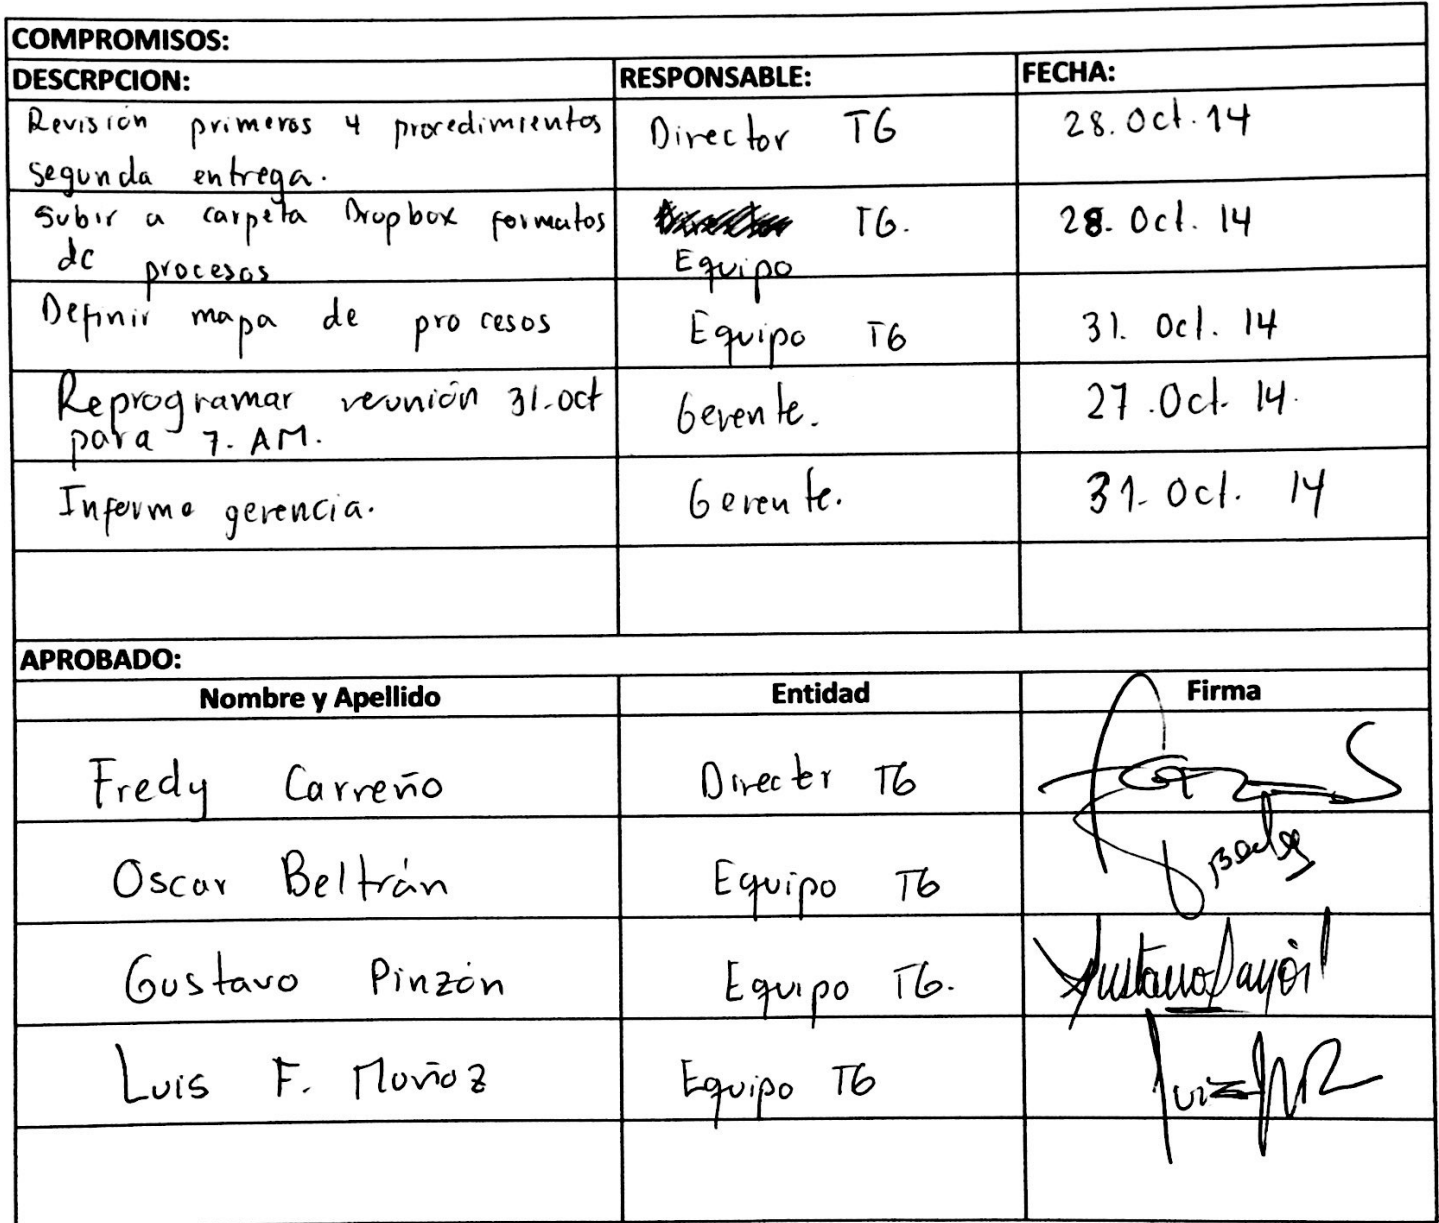 COMPROMISOS:
DESCRPCION: RESPONSABLE: FECHA:
Revisión primeros 4 procedimientos Director TG 28. Oct. 14
segunda entrega.
Subir a carpeta Dropbox formatos TG. 28. Oct. 14
de procesos Equipo
Definir mapa de procesos Equipo TG 31. Oct. 14
Reprogramar reunión 31-oct Gerente. 27. Oct. 14.
para 7. AM.
Informe gerencia. Gerente. 31. Oct. 14
APROBADO:
Nombre y Apellido Entidad Firma
Fredy Carreño Director TG
Oscar Beltrán Equipo TG
Gustavo Pinzón Equipo TG. Gustavo
Luis F. Muñoz Equipo TG